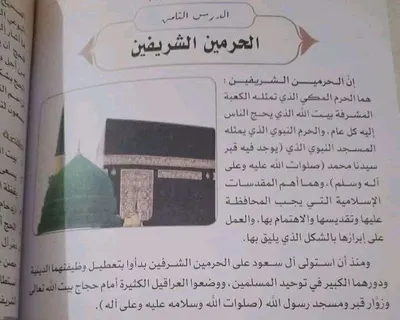 الدرس الثامن
الحرمين الشريفين
إنّ الحرمين الشريفين :
هما الحرم المكي الذي تمثله الكعبة
المشرفة بيت الله الذي يحج الناس
إليه كل عام. والحرم النبوي الذي يمثله
المسجد النبوي الذي (يوجد فيه قبر
سيدنا محمد (صلوات الله عليه وعلى
آله وسلم)، وهما أهم المقدسات
الإسلامية التي يجب المحافظة
عليها وتقديسها والاهتمام بها، والعمل
على إبرازها بالشكل الذي يليق بها.
ومنذ أن استولى آل سعود على الحرمين الشرفين بدأوا بتعطيل وظيفتهما الدينية
ودورهما الكبير في توحيد المسلمين، ووضعوا العراقيل الكثيرة أمام حجاج بيت الله تعالى
وزوّار قبر ومسجد رسول الله (صلوات الله وسلامه عليه وعلى آله).